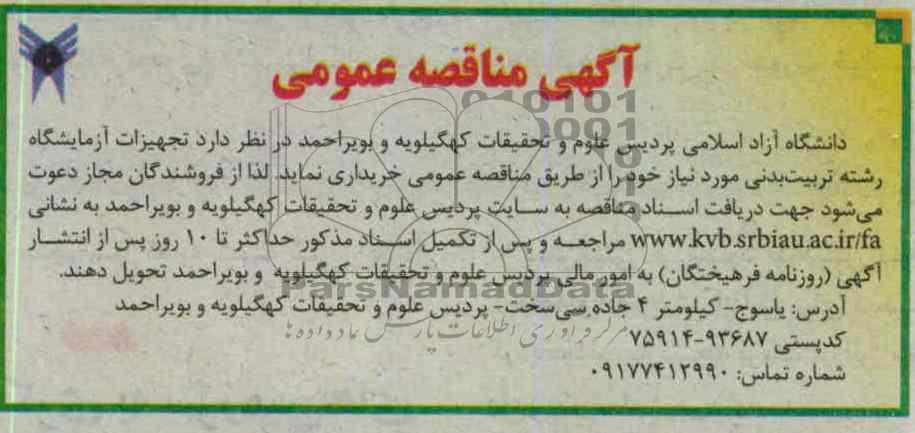 آگهی مناقصه عمومی
دانشگاه آزاد اسلامی پردیس علوم و تحقیقات کهگیلویه و بویراحمد در نظر دارد تجهیزات آزمایشگاه
رشته تربیت‌بدنی مورد نیاز خود را از طریق مناقصه عمومی خریداری نماید. لذا از فروشندگان مجاز دعوت
می‌شود جهت دریافت اسناد مناقصه به سایت پردیس علوم و تحقیقات کهگیلویه و بویراحمد به نشانی
www.kvb.srbiau.ac.ir/fa مراجعه و پس از تکمیل اسناد مذکور حداکثر تا ۱۰ روز پس از انتشار
آگهی (روزنامه فرهیختگان) به امور مالی پردیس علوم و تحقیقات کهگیلویه و بویراحمد تحویل دهند.
ParsNamadData
آدرس: یاسوج- کیلومتر ۴ جاده سی‌سخت- پردیس علوم و تحقیقات کهگیلویه و بویراحمد
مرکز فرآوری اطلاعات پارس نماد داده ها
کدپستی ۹۳۶۸۷-۷۵۹۱۴
شماره تماس: ۰۹۱۷۷۴۱۲۹۹۰